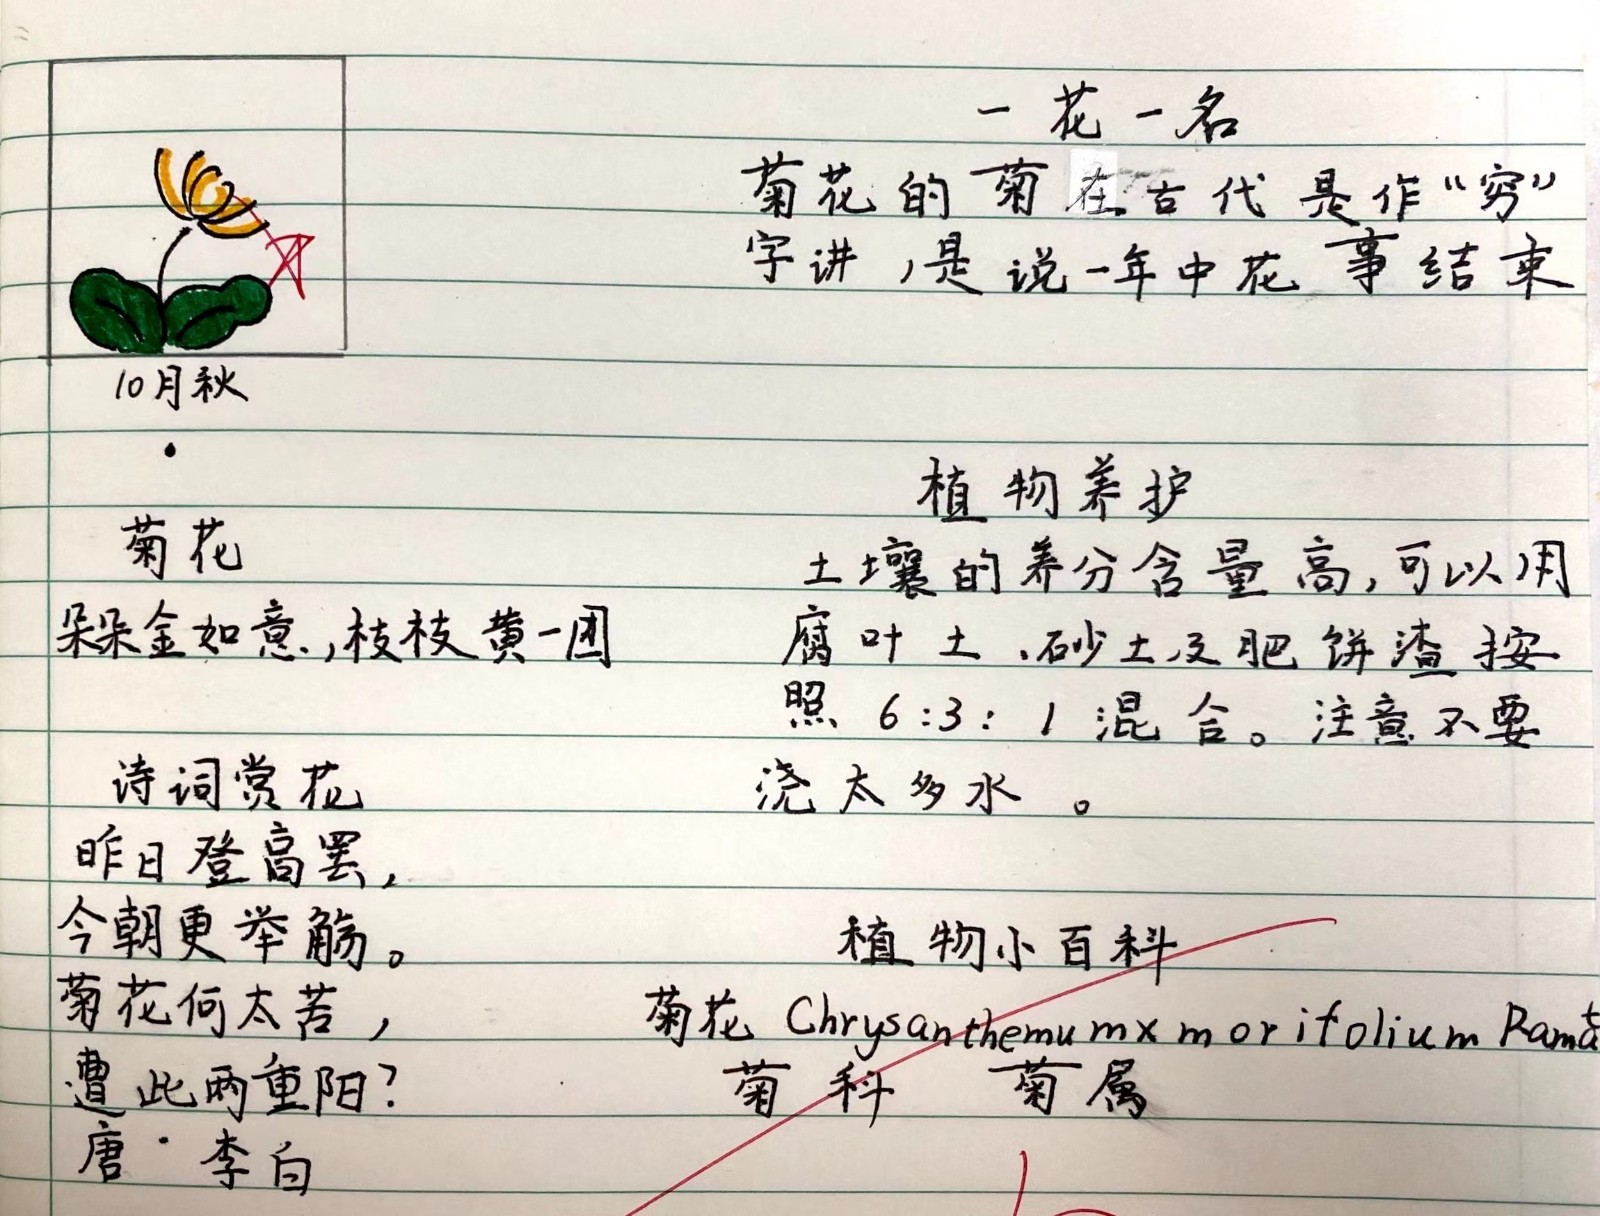 10月秋
菊花
朵朵金如意,枝枝黄一团
诗词赏花
昨日登高罢,
今朝更举觞。
菊花何太苦,
遭此两重阳?
唐·李白
一花一名
菊花的菊在古代是作“穷”
字讲,是说一年中花事结束
植物养护
土壤的养分含量高,可以用
腐叶土、砂土及肥饼渣按
照6:3:1混合。注意不要
浇太多水。
植物小百科
菊花 Chrysanthemum x morifolium Ramat
菊科 菊属